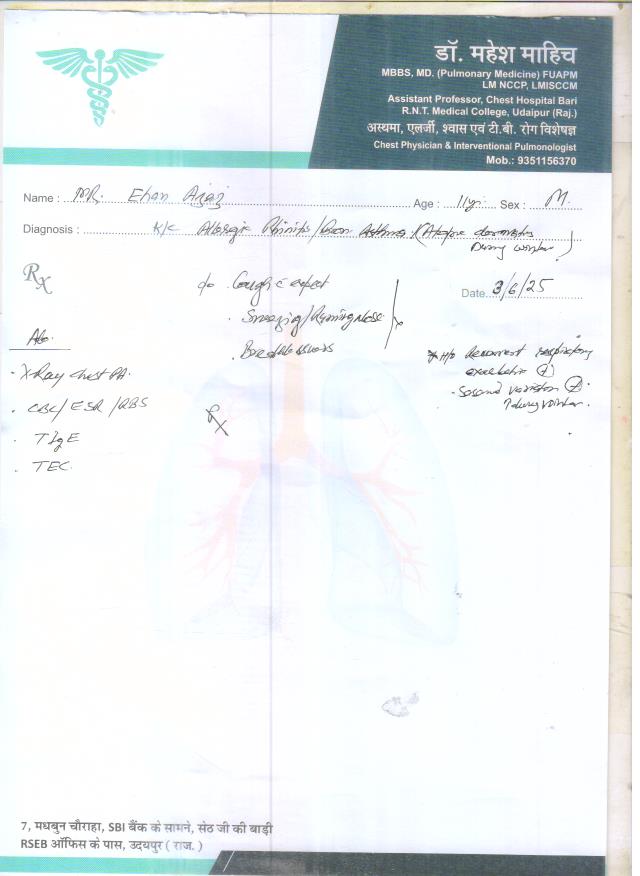 डॉ. महेश माहिच
MBBS, MD. (Pulmonary Medicine) FUAPM
LM NCCP, LMISCCM
Assistant Professor, Chest Hospital Bari
R.N.T. Medical College, Udaipur (Raj.)
अस्थमा, एलर्जी, श्वास एवं टी.बी. रोग विशेषज्ञ
Chest Physician & Interventional Pulmonologist
Mob.: 9351156370
Name : MR. Ehan Age : 11yr. Sex : M
Diagnosis : K/C Allergic Rhinitis / Asthma (Atopic dermatitis
During winter)
Rx
c/o Cough c expect
Date 3/6/25
. Sneezing/Running Nose
. Breathlessness
* H/o recurrent respiratory
(+)
. variation (+)
during winter.
Adv.
. X-Ray Chest PA
. CBC/ESR/RBS
Rx
. TIgE
. TEC
7, मधुबन चौराहा, SBI बैंक के सामने, सेठ जी की बाड़ी
RSEB ऑफिस के पास, उदयपुर ( राज. )